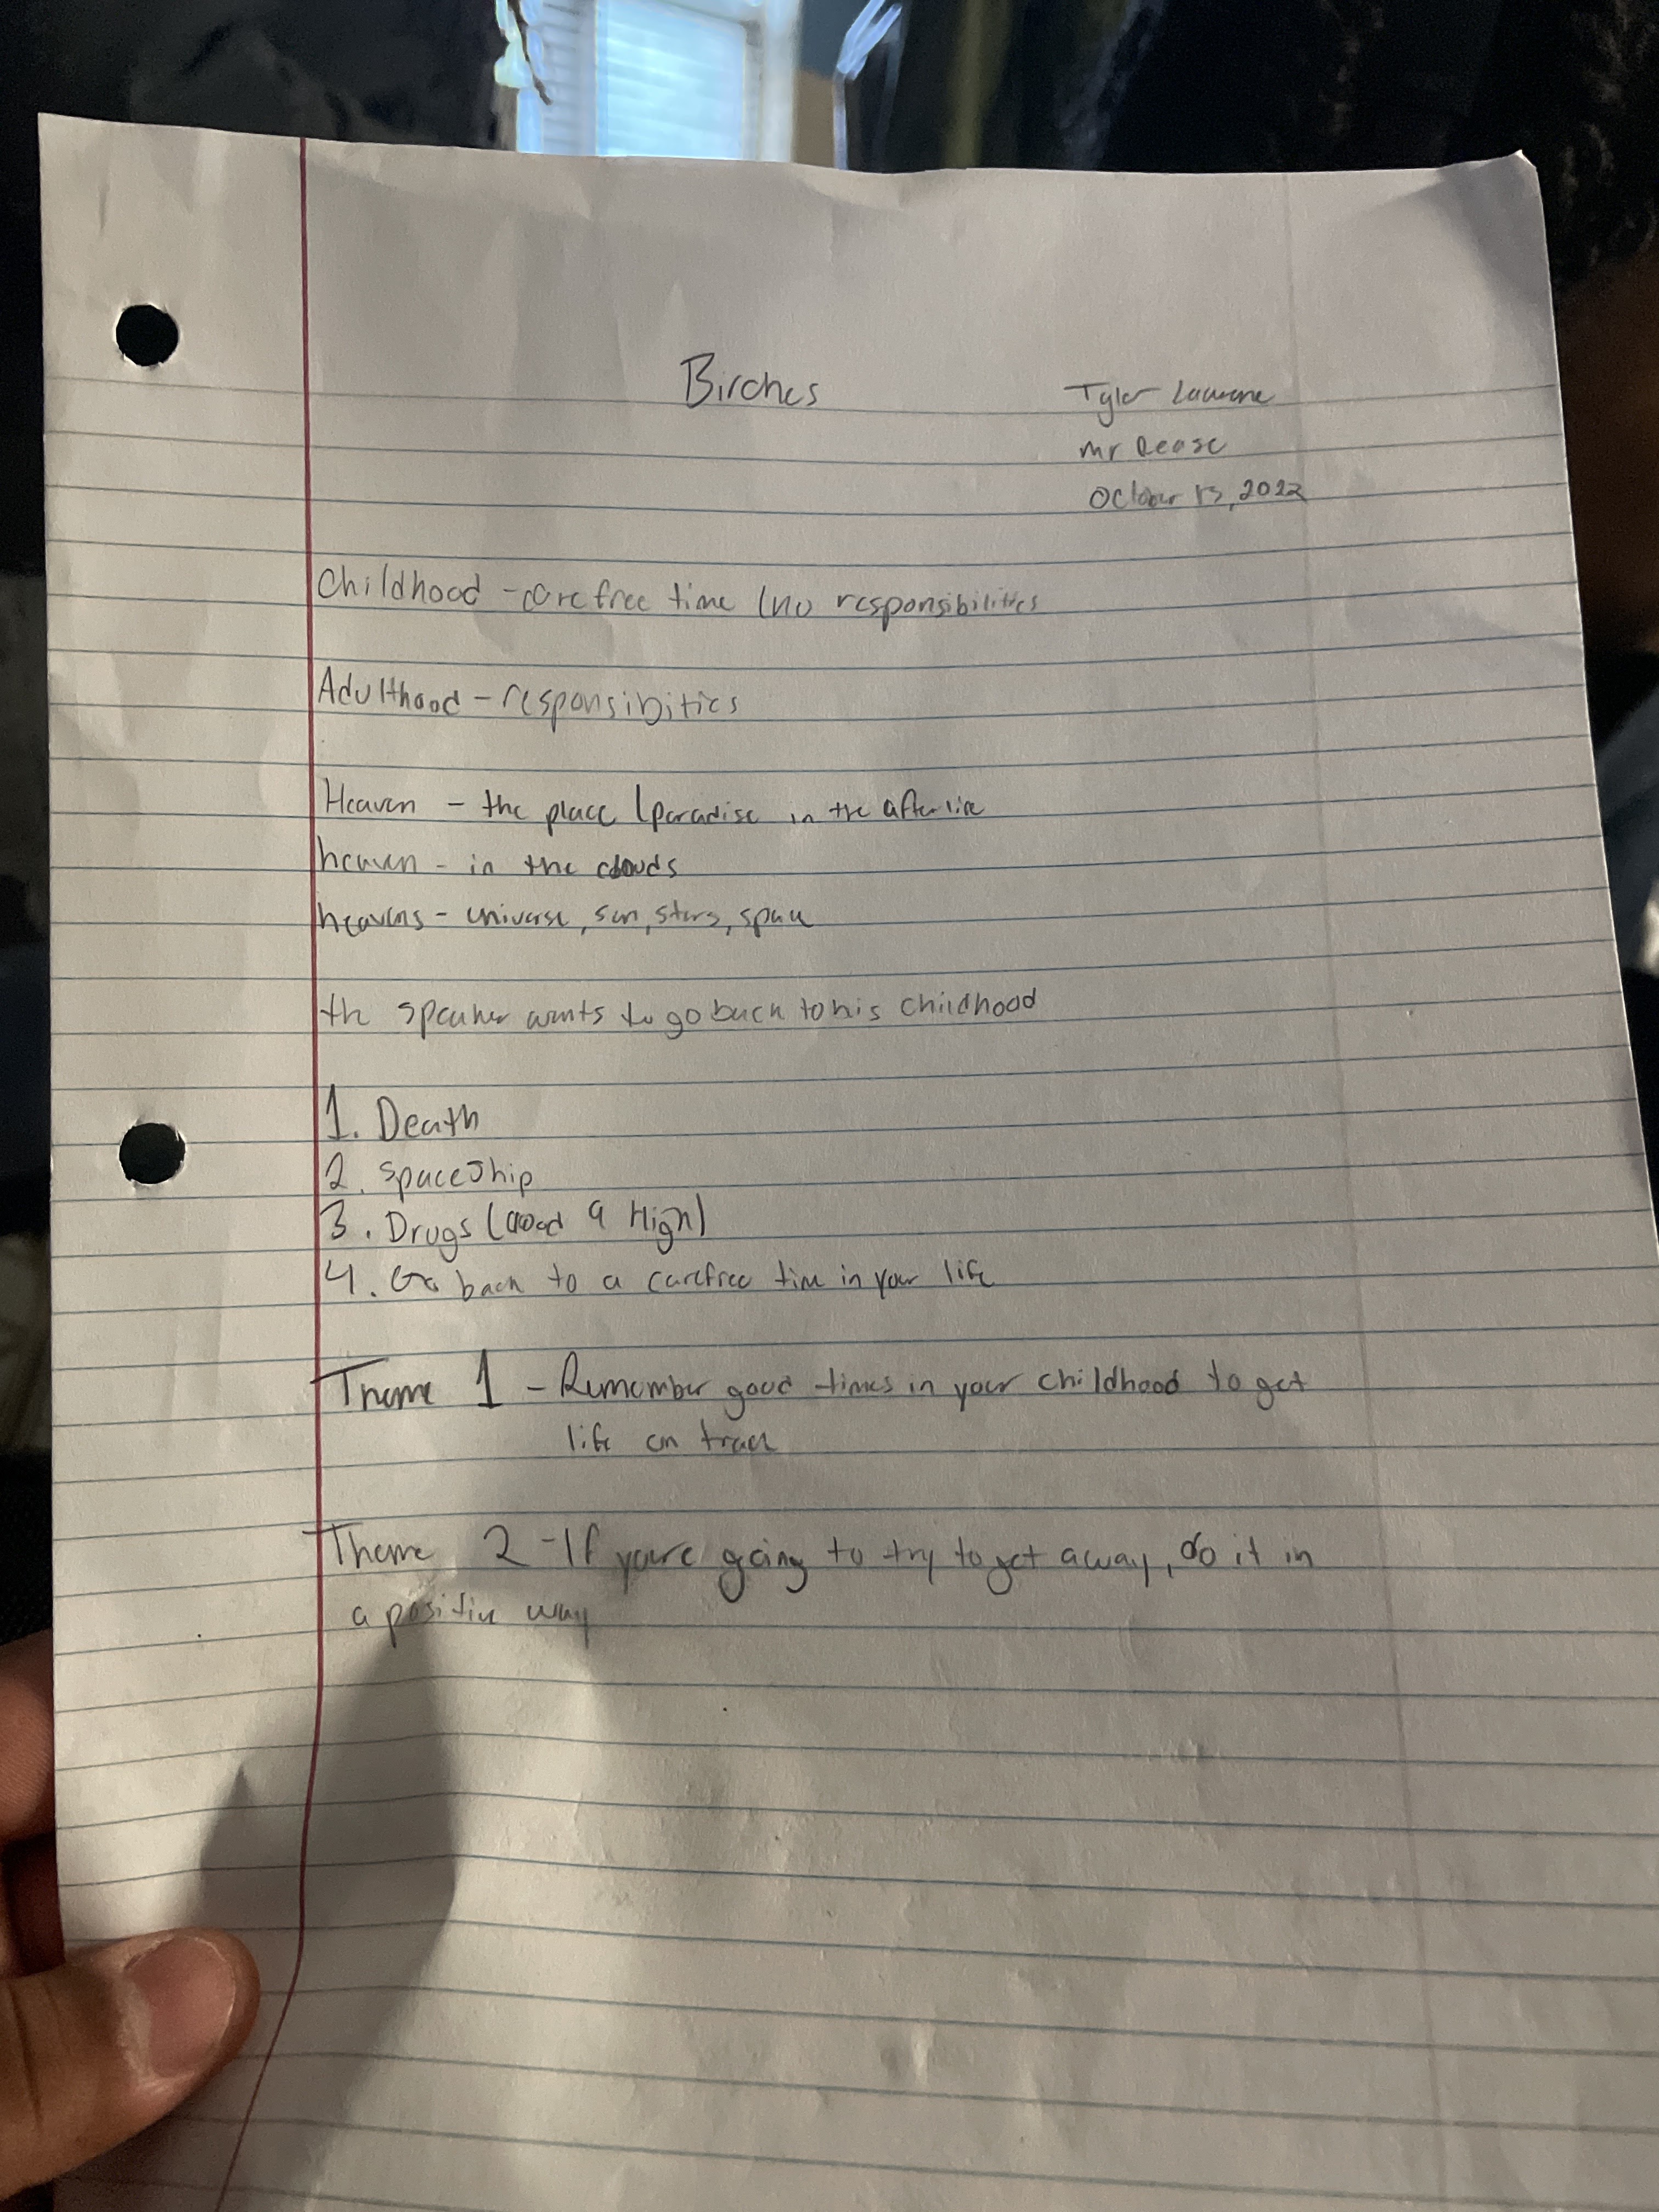 Birches
Tyler
Mr
October 13, 2022
Childhood - carefree time (no responsibilities
Adulthood - responsibities
Heaven - the place (paradise in the afterlife
heaven - in the clouds
heavens - universe, sun, stars, space
the speaker wants to go back to his childhood
1. Death
2. spaceship
3. Drugs ( a High)
4. Go back to a carefree time in your life
Theme 1 - Remember good times in your childhood to get
life on track
Theme 2 - If youre going to try to get away, do it in
a positive way